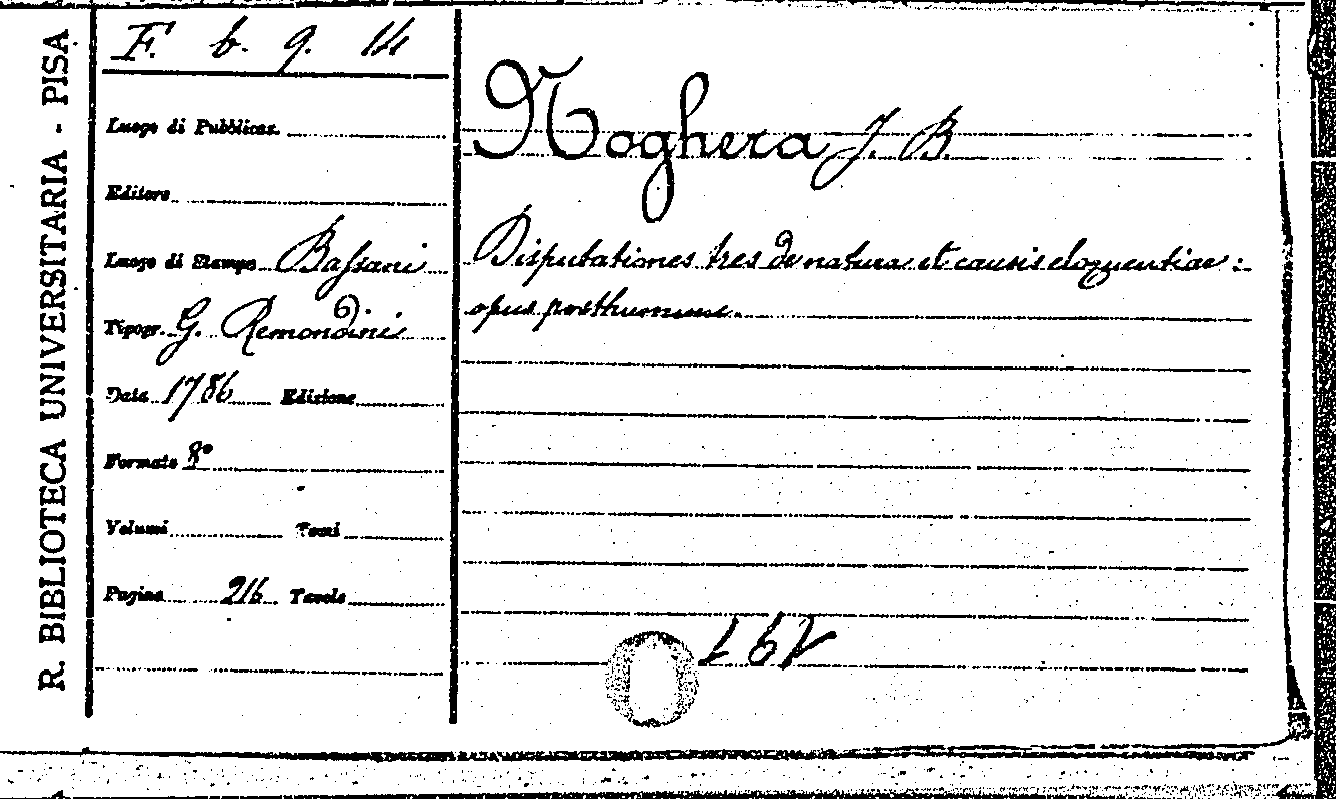 R. BIBLIOTECA UNIVERSITARIA - PISA
F. b. 9. 14
Luogo di Pubblicaz.
Editore
Luogo di Stampa Bassani
Tipogr. G. Remondini
Data 1786 Edizione
Formato 8°
Volumi Tomi
Pagine 216 Tavole
Noghera J. B.
Disputationes tres de natura et causis eloquentiae:
opus posthumum.